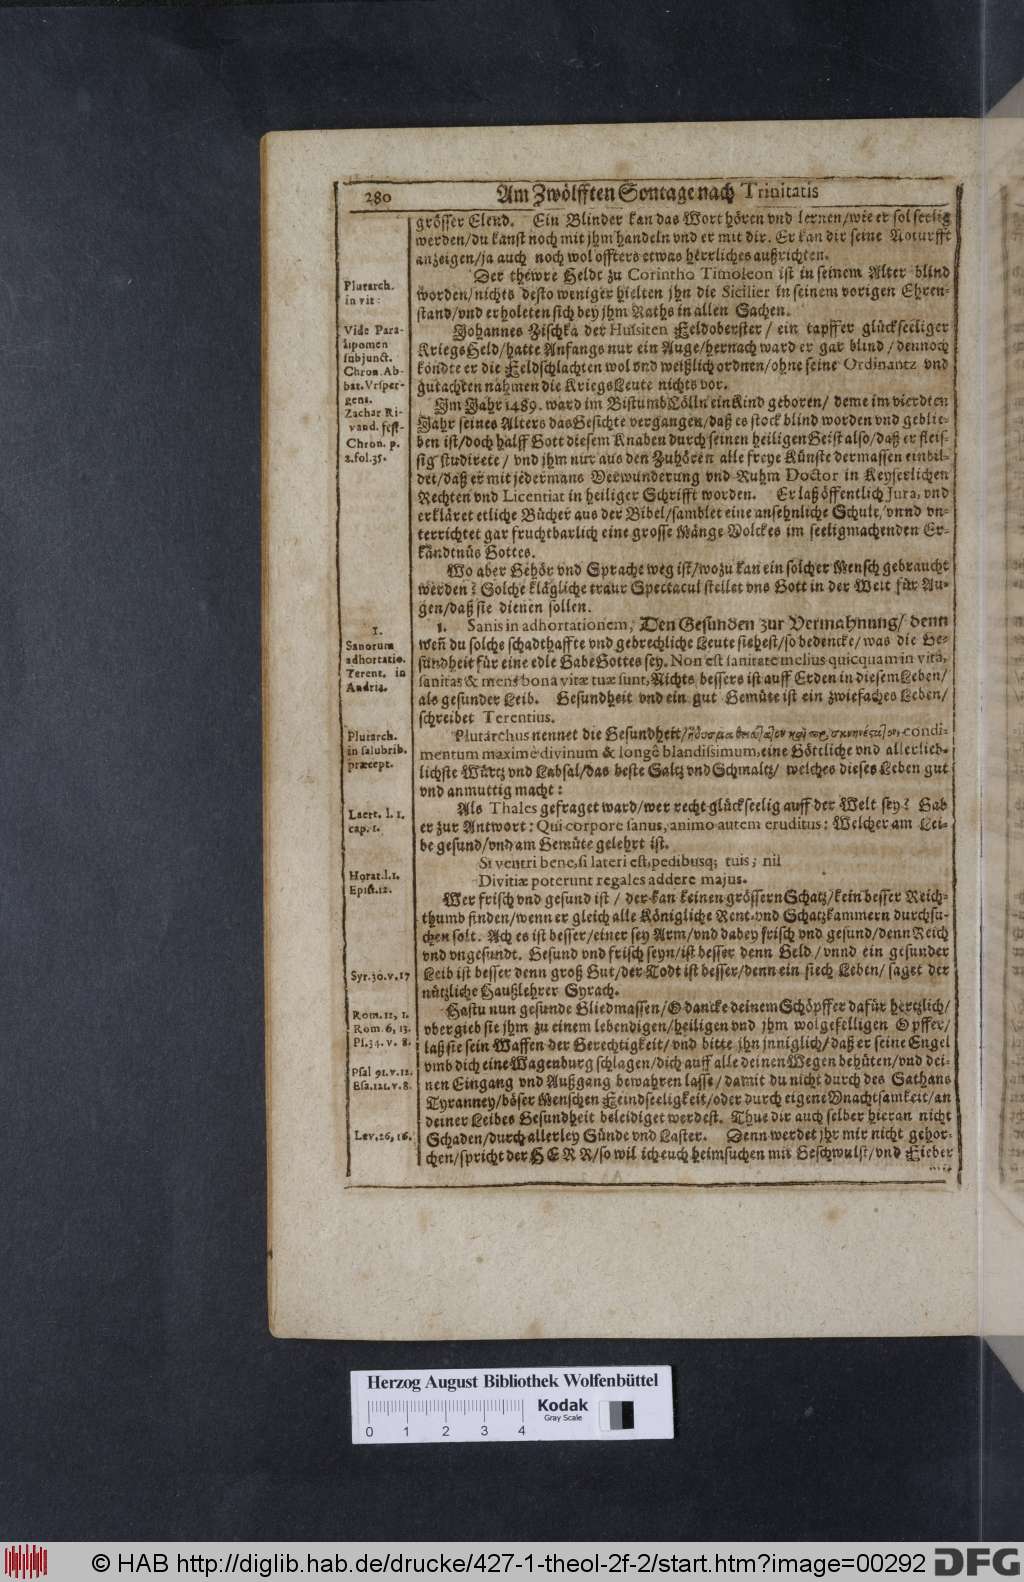 280
Am Zwölfften Sontage nach Trinitatis
grösser Elend. Ein Blinder kan das Wort hören vnd lernen/wie er sol seelig
werden/du kanst noch mit jhm handeln vnd er mit dir. Er kan dir seine Noturfft
anzeigen/ja auch noch wol offters etwas herrliches außrichten.
Der thewre Helde zu Corintho Timoleon ist in seinem Alter blind
worden/nichts desto weniger hielten jhn die Sicilier in seinem vorigen Ehren-
stand/vnd erholeten sich bey jhm Raths in allen Sachen.
Johannes Zischka der Hussiten Feldoberster/ ein tapffer glückseeliger
KriegsHeld/hatte Anfangs nur ein Auge/hernach ward er gar blind/dennoch
kondte er die Feldschlachten wol vnd weißlich ordnen/ohne seine Ordinantz vnd
gutachten nahmen die KriegsLeute nichts vor.
Im Jahr 1489. ward im Bistumb Cölln ein Kind geboren/ deme im vierdten
Jahr seines Alters das Gesichte vergangen/daß es stock blind worden vnd geblie-
ben ist/doch halff Gott diesem Knaben durch seinen heiligen Geist also/daß er fleis-
sig studirete/ vnd jhm nur aus den Zuhören alle freye Künste dermassen einbil-
det/daß er mit jedermans Verwunderung vnd Ruhm Doctor in Keyserlichen
Rechten vnd Licentiat in heiliger Schrifft worden. Er laß öffentlich Jura, vnd
erkläret etliche Bücher aus der Bibel/samblet eine ansehnliche Schule/vnnd vn-
terrichtet gar fruchtbarlich eine grosse Mänge Volckes im seeligmachenden Er-
kändtnüs Gottes.
Wo aber Gehör vnd Sprache weg ist/wozu kan ein solcher Mensch gebraucht
werden? Solche klägliche traur Spectacul stellet vns Gott in der Welt für Au-
gen/daß sie dienen sollen.
1. Sanis in adhortationem, Den Gesunden zur Vermahnung/ denn
weñ du solche schadthaffte vnd gebrechliche Leute siehest/so bedencke/was die Ge-
sundheit für eine edle Gabe Gottes sey. Non est sanitate melius quicquam in vita,
sanitas & mens bona vitæ tuæ sunt, Nichts bessers ist auff Erden in diesem Leben/
als gesunder Leib. Gesundheit vnd ein gut Gemüte ist ein zwiefaches Leben/
schreibet Terentius.
Plutarchus nennet die Gesundheit/ condi-
mentum maximè divinum & longè blandissimum, eine Göttliche vnd allerlieb-
lichste Würtz vnd Labsal/das beste Saltz vnd Schmaltz/ welches dieses Leben gut
vnd anmuttig macht:
Als Thales gefraget ward/wer recht glückseelig auff der Welt sey? Gab
er zur Antwort: Qui corpore sanus, animo autem eruditus: Welcher am Lei-
be gesund/vnd am Gemüte gelehrt ist.
Si ventri bene, si lateri est, pedibusq; tuis; nil
Divitiæ poterunt regales addere majus.
Wer frisch vnd gesund ist/ der kan keinen grössern Schatz/kein besser Reich-
thumb finden/wenn er gleich alle Königliche Rent-vnd Schatzkammern durchsu-
chen solt. Ach es ist besser/einer sey Arm/vnd dabey frisch vnd gesund/denn Reich
vnd vngesundt. Gesund vnd frisch seyn/ist besser denn Geld/vnnd ein gesunder
Leib ist besser denn groß Gut/der Todt ist besser/denn ein siech Leben/ saget der
nützliche Haußlehrer Syrach.
Hastu nun gesunde Gliedmassen/O dancke deinem Schöpffer dafür hertzlich/
vbergieb sie jhm zu einem lebendigen/heiligen vnd jhm wolgefelligen Opffer/
laß sie sein Waffen der Gerechtigkeit/vnd bitte jhn jnniglich/daß er seine Engel
vmb dich eine Wagenburg schlagen/dich auff alle deinen Wegen behüten/vnd dei-
nen Eingang vnd Außgang bewahren lasse/damit du nicht durch des Sathans
Tyranney/böser Menschen Feindseeligkeit/oder durch eigene Vnachtsamkeit/an
deiner Leibes Gesundheit beleidiget werdest. Thue dir auch selber hieran nicht
Schaden/durch allerley Sünde vnd Laster. Denn werdet jhr mir nicht gehor-
chen/spricht der HERR/so wil ich euch heimsuchen mit Geschwulst/vnd Fieber
Plutarch.
in vit:
Vide Para-
lipomen
subjunct.
Chron. Ab-
bat. Vrsper-
gens.
Zachar Ri-
vand. fest-
Chron. p.
2. fol. 35.
1.
Sanorum
adhortatio.
Terent. in
Andria.
Plutarch.
in salubrib.
præcept.
Laert. l. 1.
cap. 1.
Horat. l. 1.
Epist. 12.
Syr. 30. v. 17
Rom. 12, 1.
Rom. 6, 13.
Ps. 34. v. 8.
Psal 91. v. 12.
Esa. 121. v. 8.
Lev. 26, 16.
Herzog August Bibliothek Wolfenbüttel
Kodak
Gray Scale
0 1 2 3 4
© HAB http://diglib.hab.de/drucke/427-1-theol-2f-2/start.htm?image=00292
DFG